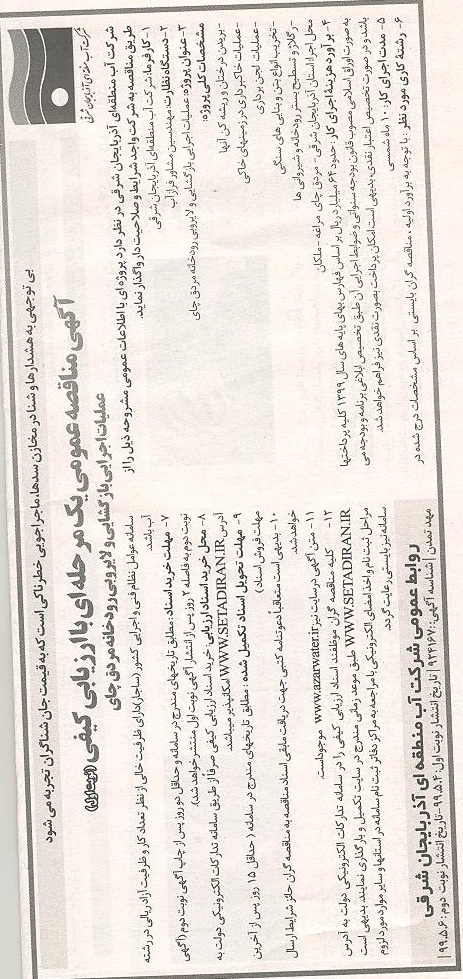 بی توجهی به هشدارها و شنا در مخازن سدها، ماجراجویی خطرناکی است که به قیمت جان شناگران تجربه می شود
آگهی مناقصه عمومی یک مرحله ای با ارزیابی کیفی (نوبت اول)
عملیات اجرایی بازگشایی و لایروبی رودخانه مردق چای
شرکت آب منطقه ای آذربایجان شرقی
شرکت آب منطقه‌ای آذربایجان شرقی در نظر دارد پروژه ای با اطلاعات عمومی مشروحه ذیل را از
طریق مناقصه به شرکت واجد شرایط و صلاحیت دار واگذار نماید.
۱- کارفرما: شرکت آب منطقه‌ای آذربایجان شرقی
۲- دستگاه نظارت: مهندسین مشاور فرازآب
۳- عنوان پروژه: عملیات اجرایی بازگشایی و لایروبی رودخانه مردق چای
مشخصات کلی پروژه:
- بریدن درختان و ریشه کن آنها
- عملیات خاکبرداری در زمینهای خاکی
- عملیات لجن برداری
- تخریب انواع بتن و بنایی های سنگی
- رگلاژ و تسطیح بستر رودخانه و شیروانی ها
محل اجرا: استان آذربایجان شرقی - مردق چای مراغه - ملکان
۴- برآورد هزینهٔ اجرای کار: حدود ۶۴ میلیارد ریال بر اساس فهارس بهای پایه های سال ۱۳۹۹ کلیه پرداختها
به صورت اوراق اسلامی مصوب قانون بودجه سنواتی و ضوابط اجرایی آن طبق تخصیص ابلاغی برنامه و بودجه می
باشد و در صورت تخصیص اعتبار نقدی بدیهی است امکان پرداخت بصورت نقدی نیز فراهم خواهد شد.
۵- مدت اجرای کار: ۱۰ ماه شمسی
۶- رشتهٔ کاری مورد نظر: با توجه به برآورد اولیه، مناقصه گران بایستی بر اساس مشخصات درج شده در
سامانه عوامل نظام فنی و اجرایی کشور (ساجار) دارای ظرفیت خالی از نظر تعداد کار و ظرفیت آزاد ریالی در رشته
آب باشد.
۷- مهلت خرید اسناد: مطابق تاریخهای مندرج در سامانه و حداقل دو روز پس از چاپ آگهی نوبت دوم (آگهی
نوبت دوم به فاصله ۲ روز پس از انتشار آگهی نوبت اول منتشر خواهد شد).
۸- محل خرید اسناد ارزیابی: خرید اسناد ارزیابی کیفی صرفاً از طریق سامانه تدارکات الکترونیکی دولت به
آدرس WWW.SETADIRAN.IR امکانپذیر میباشد.
۹- مهلت تحویل اسناد تکمیل شده: مطابق تاریخهای مندرج در سامانه (حداقل ۱۵ روز پس از آخرین
مهلت فروش اسناد)
۱۰- بدیهی است متعاقباً دعوتنامه کتبی جهت دریافت مابقی اسناد مناقصه به مناقصه گران حائز شرایط ارسال
خواهد شد.
۱۱- متن آگهی در سایت نیز www.azarwater.ir موجود است.
۱۲- کلیه مناقصه گران موظفند اسناد ارزیابی کیفی را در سامانه تدارکات الکترونیکی دولت به آدرس
WWW.SETADIRAN.IR طبق موعد زمانی مندرج در سایت تکمیل و بارگذاری نمایند بدیهی است
مراحل ثبت نام و اخذ امضای الکترونیکی با مراجعه به مراکز دفاتر ثبت نام سامانه در استانها و سایر موارد مورد لزوم
سامانه نیز بایستی رعایت گردد.
روابط عمومی شرکت آب منطقه ای آذربایجان شرقی
مهد تمدن | شناسه آگهی: ۹۱۴۱۶۷ | تاریخ انتشار نوبت اول: ۹۹.۵.۴ - تاریخ انتشار نوبت دوم: ۹۹.۵.۶